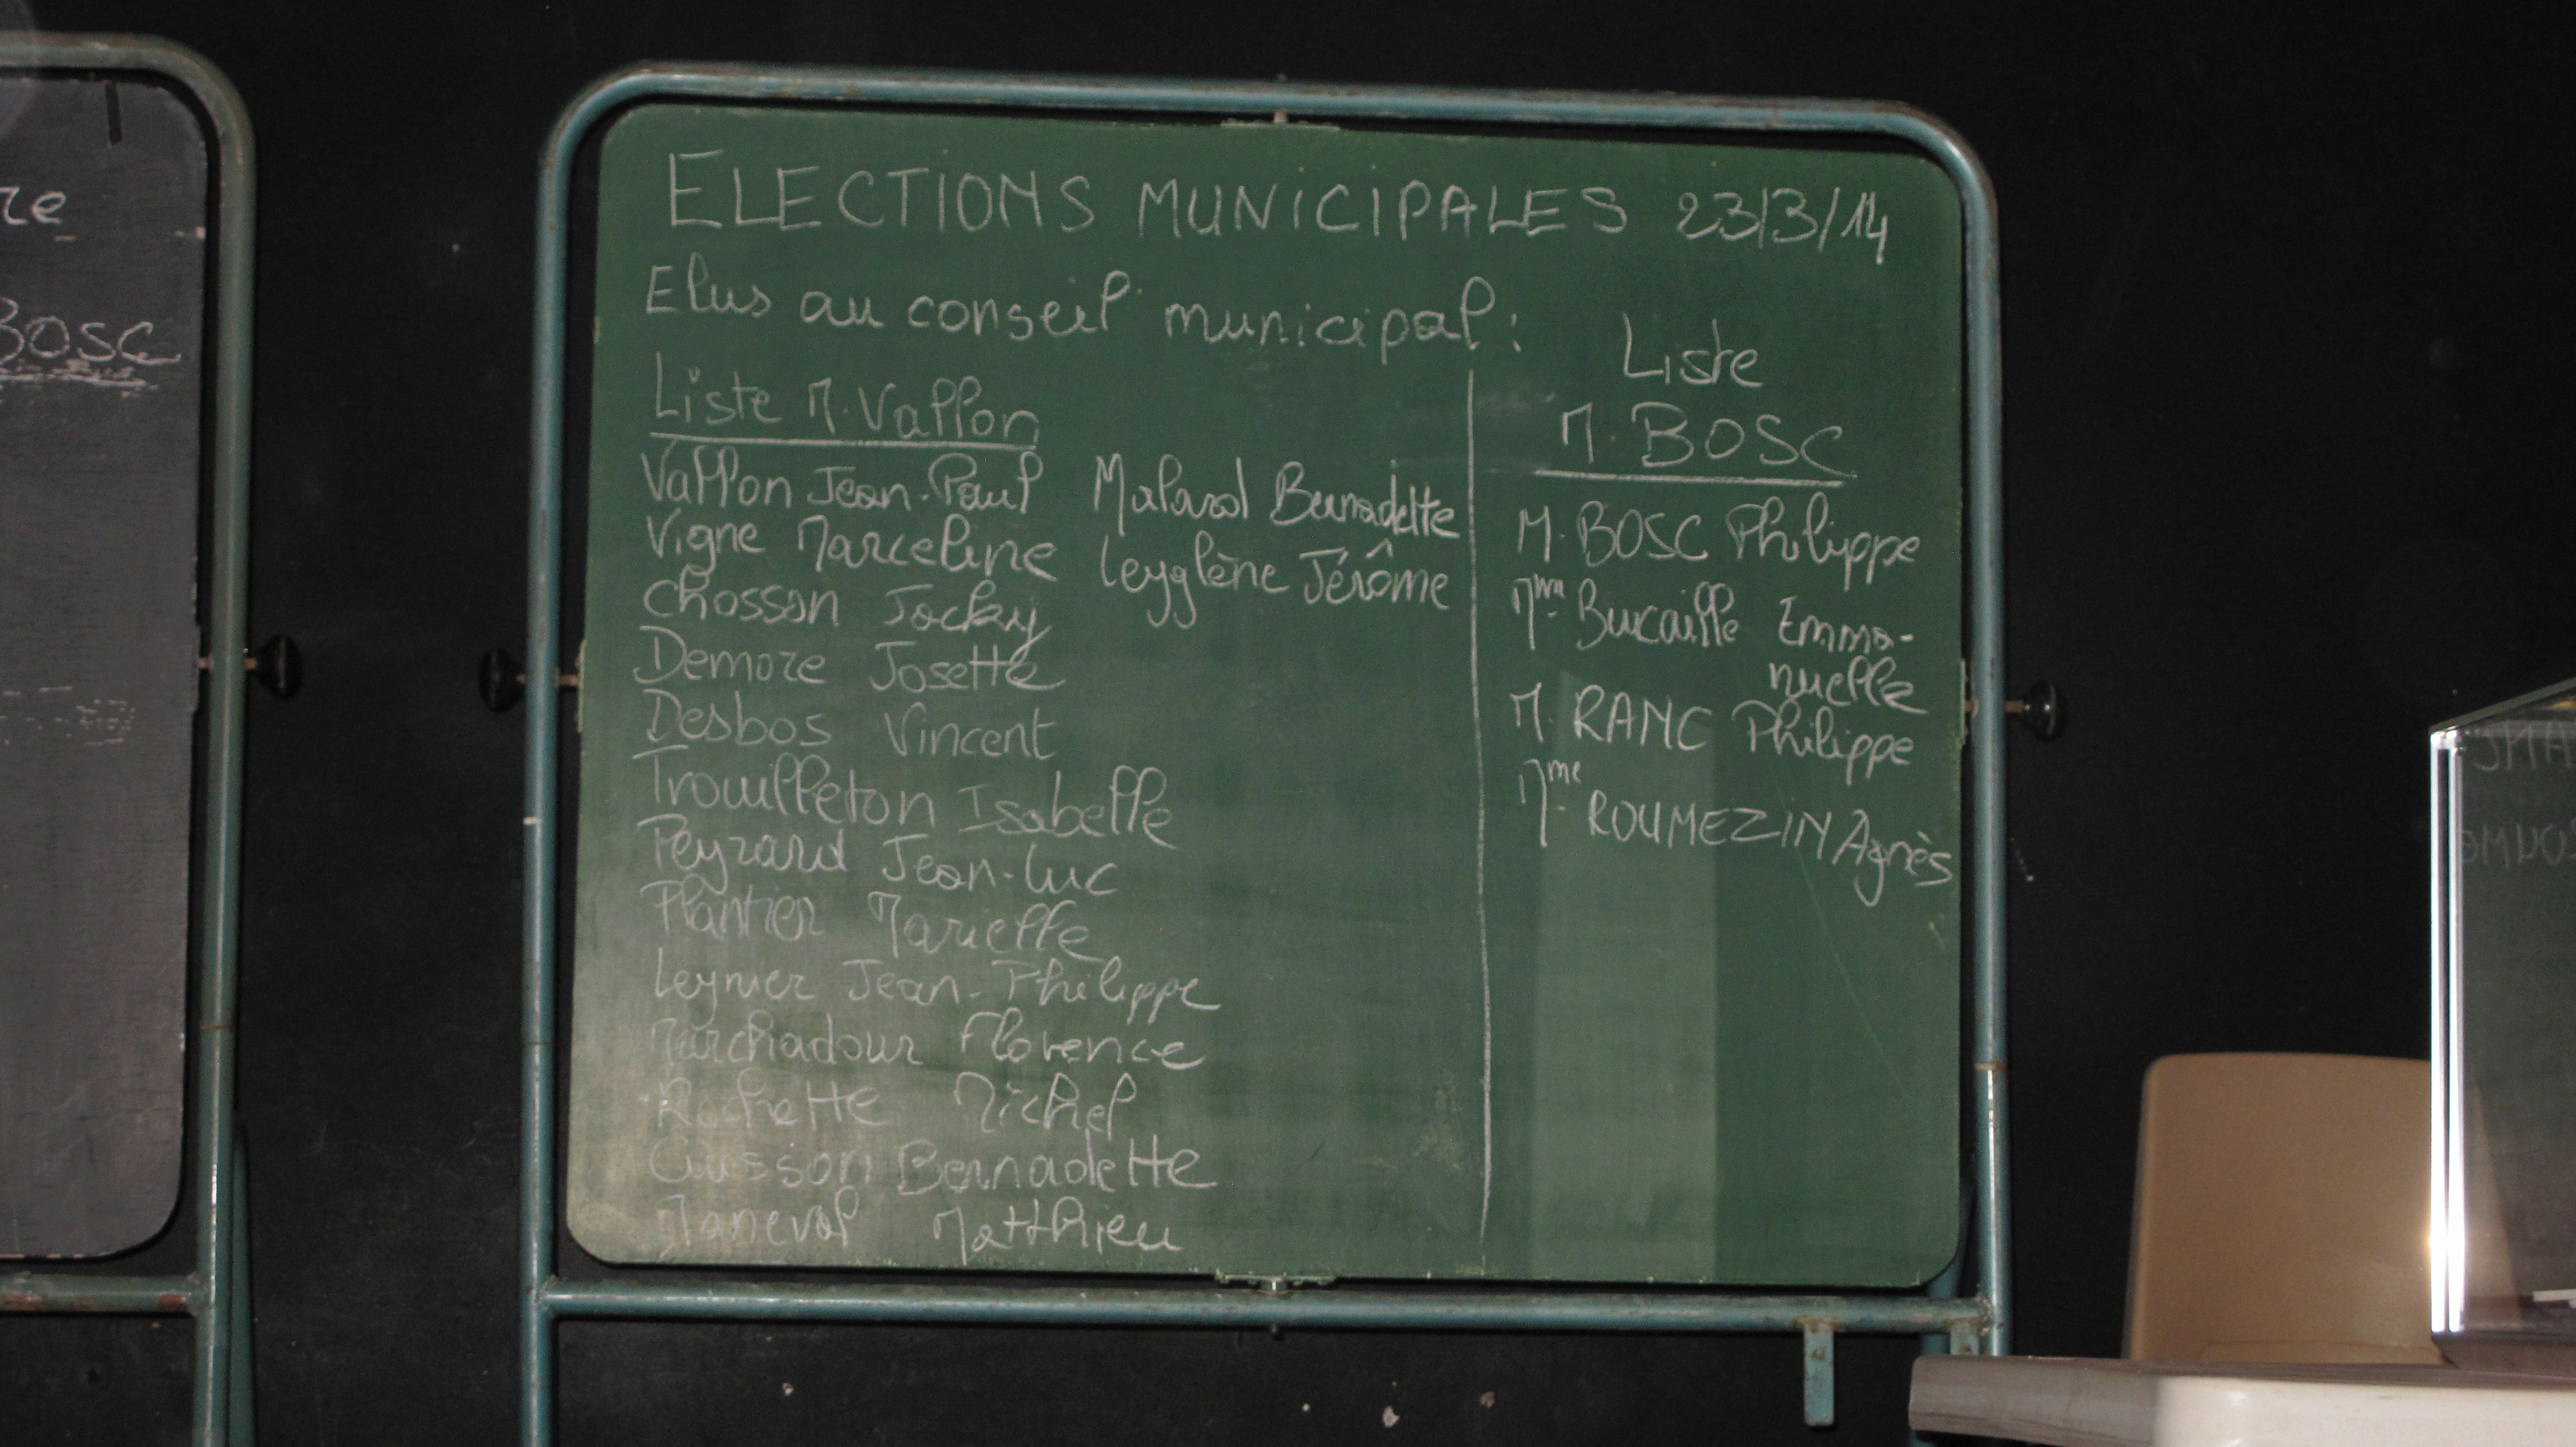 re
BOSC
ELECTIONS MUNICIPALES 23/3/14
Elus au conseil municipal :
Liste M. Vallon
Vallon Jean-Paul
Vigne Marceline
Chosson Jacky
Demore Josette
Desbos Vincent
Trouilleton Isabelle
Peyrard Jean-Luc
Plantier Marielle
Leynier Jean-Philippe
Marchadour Florence
Rochette Michel
Cusson Bernadette
Maneval Matthieu
Malarol Bernadette
Leyglène Jérôme
Liste
M. BOSC
M. BOSC Philippe
Mme Bucaille Emma-
nuelle
M. RANC Philippe
Mme ROUMEZIN Agnès